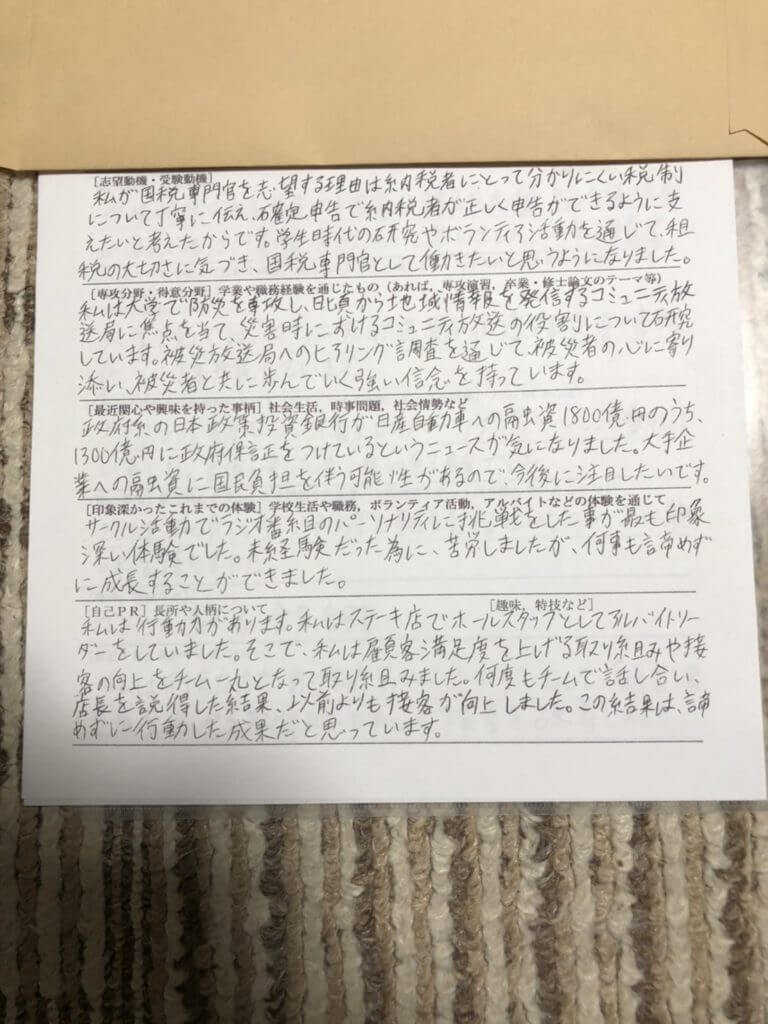 [志望動機・受験動機]
私が国税専門官を志望する理由は納税者にとって分かりにくい税制
について丁寧に伝え、確定申告で納税者が正しく申告ができるように支
えたいと考えたからです。学生時代の研究やボランティア活動を通じて、租
税の大切さに気づき、国税専門官として働きたいと思うようになりました。
[専攻分野・得意分野] 学業や職務経験を通じたもの（あれば，専攻演習，卒業・修士論文のテーマ等）
私は大学で防災を専攻し、日頃から地域情報を発信するコミュニティ放
送局に焦点を当て、災害時におけるコミュニティ放送の役割りについて研究
しています。被災放送局へのヒアリング調査を通じて、被災者の心に寄り
添い、被災者と共に歩んでいく強い信念を持っています。
[最近関心や興味を持った事柄] 社会生活，時事問題，社会情勢など
政府系の日本政策投資銀行が日産自動車への融資1800億円のうち、
1300億円に政府保証をつけているというニュースが気になりました。大手企
業への融資に国民負担を伴う可能性があるので、今後に注目したいです。
[印象深かったこれまでの体験] 学校生活や職務，ボランティア活動，アルバイトなどの体験を通じて
サークル活動でラジオ番組のパーソナリティに挑戦をした事が最も印象
深い体験でした。未経験だった為に、苦労しましたが、何事も諦めず
に成長することができました。
[自己ＰＲ] 長所や人柄について [趣味，特技など]
私は行動力があります。私はステーキ店でホールスタッフとしてアルバイトリー
ダーをしていました。そこで、私は顧客満足度を上げる取り組みや接
客の向上をチーム一丸となって取り組みました。何度もチームで話し合い、
店長を説得した結果、以前よりも接客が向上しました。この結果は、諦
めずに行動した成果だと思っています。